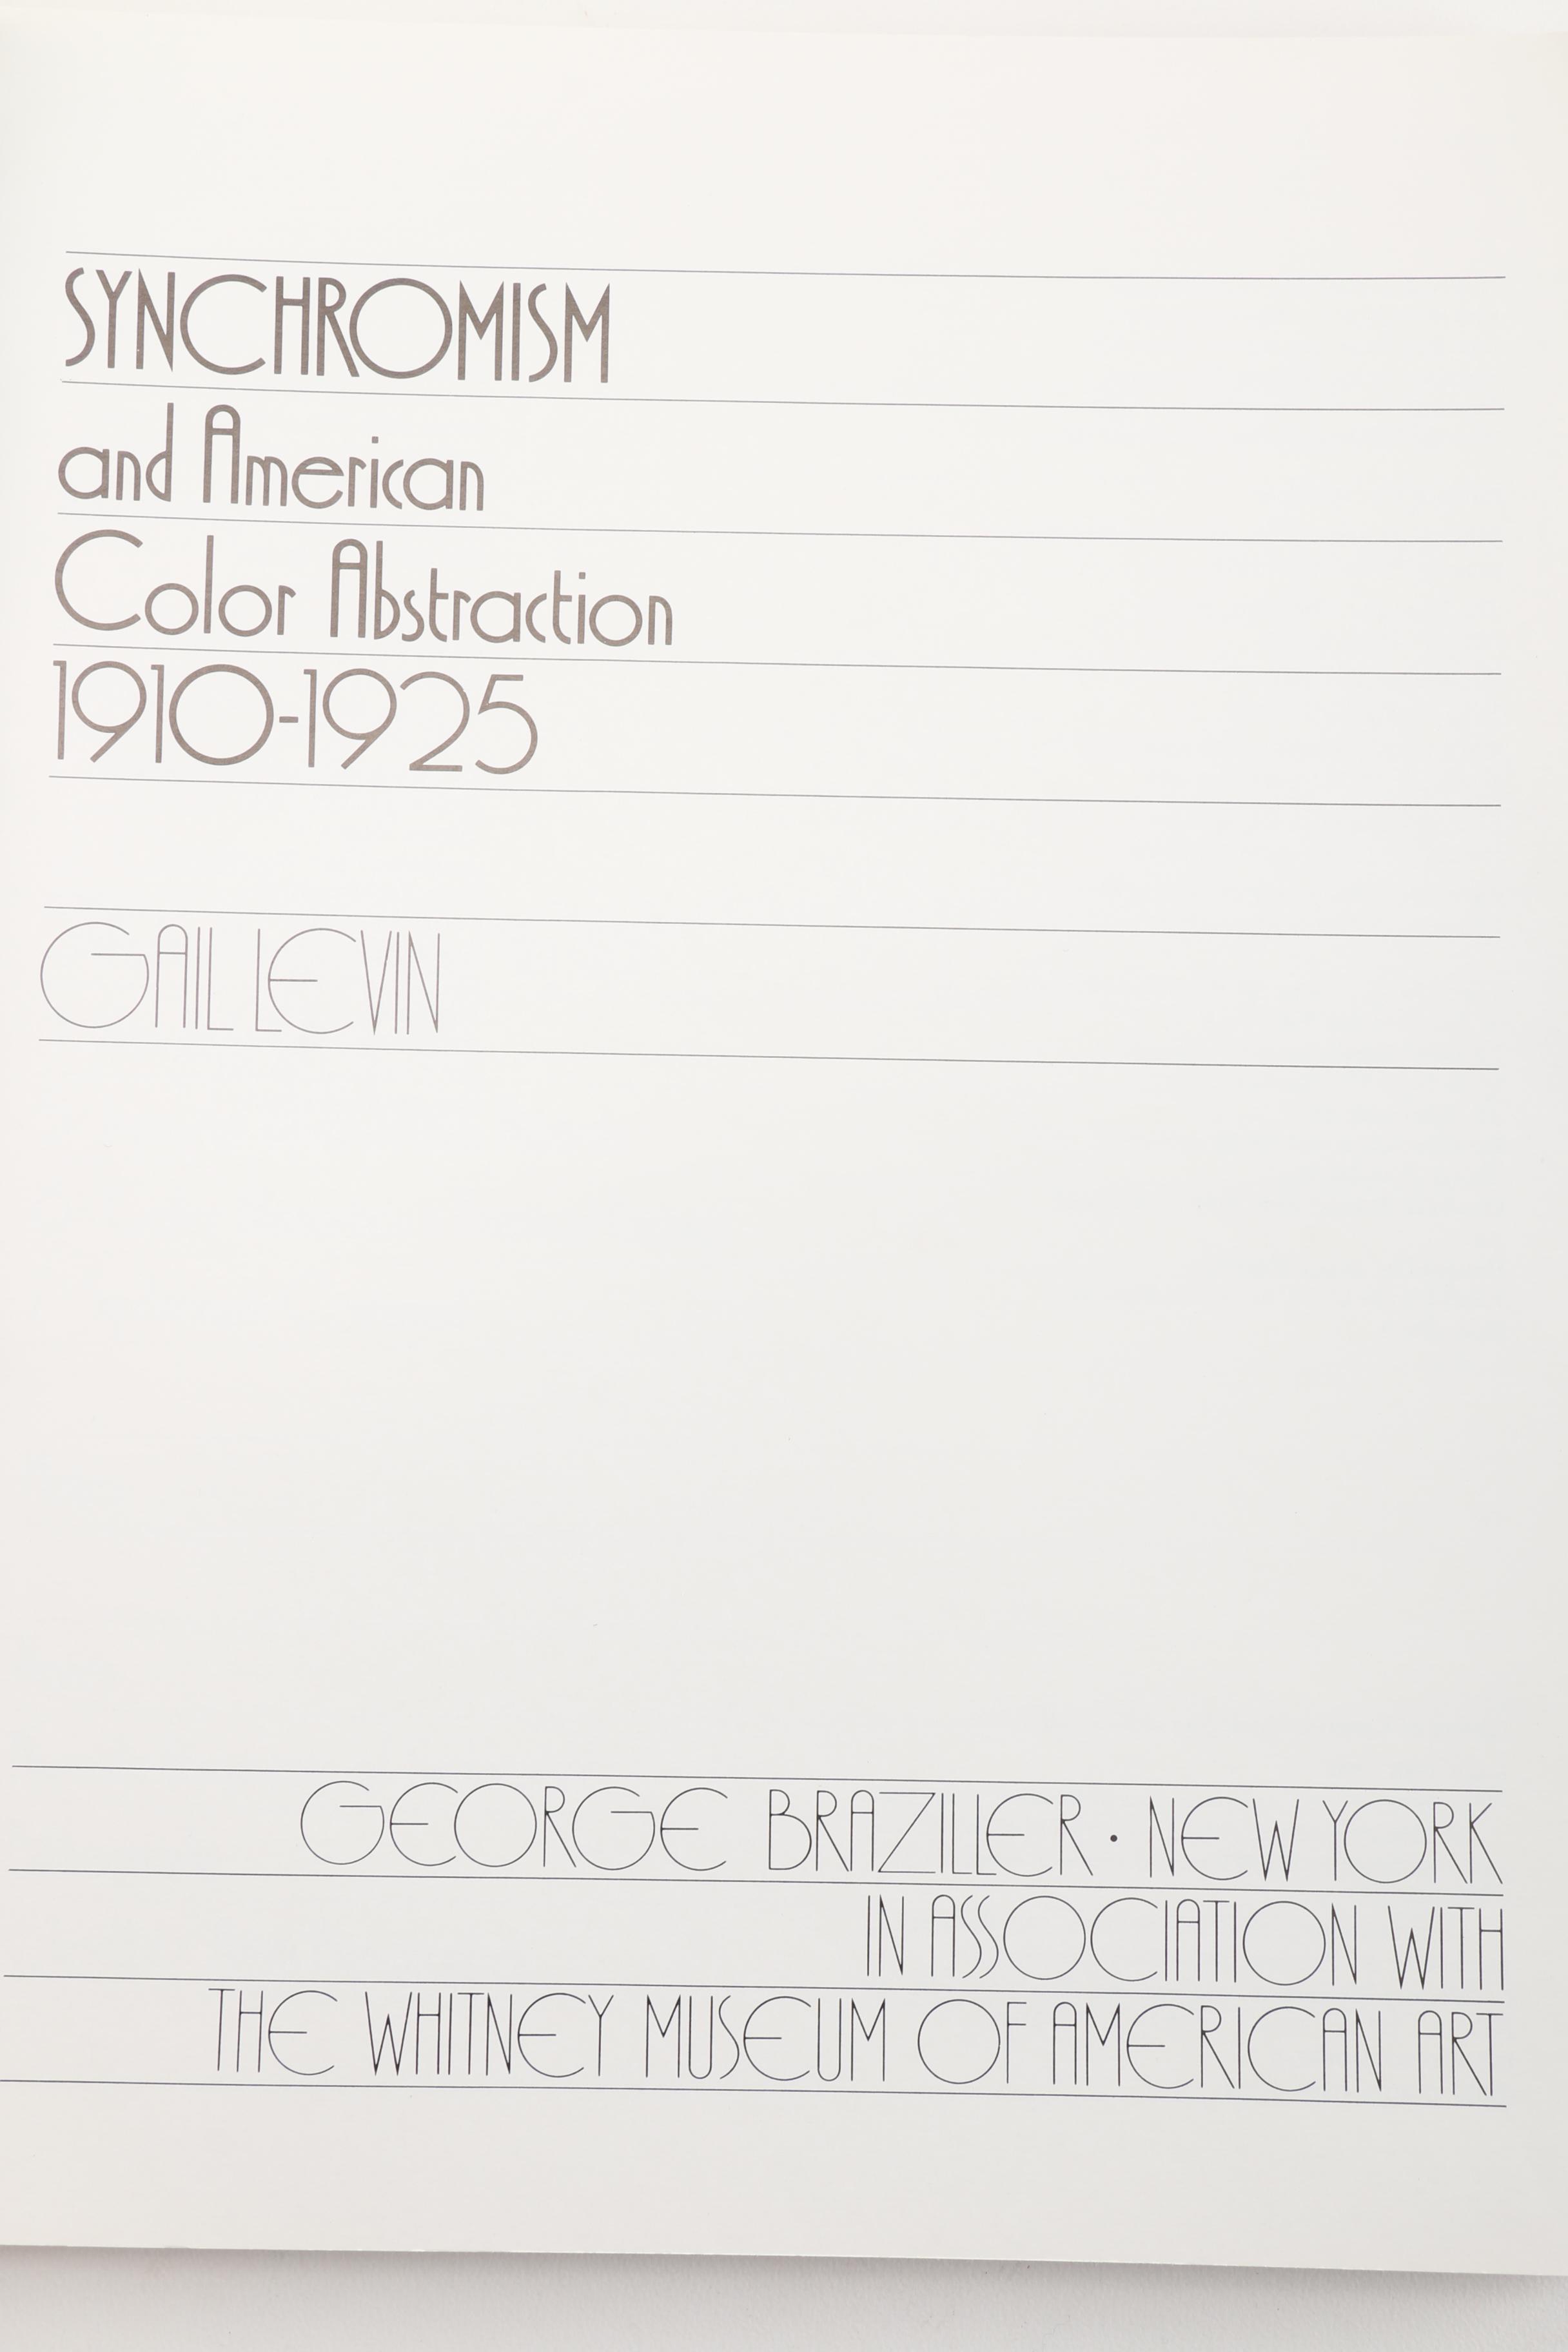 SYNCHROMISM
and American
Color Abstraction
1910-1925
GAIL LEVIN
GEORGE BRAZILLER • NEW YORK
IN ASSOCIATION WITH
THE WHITNEY MUSEUM OF AMERICAN ART